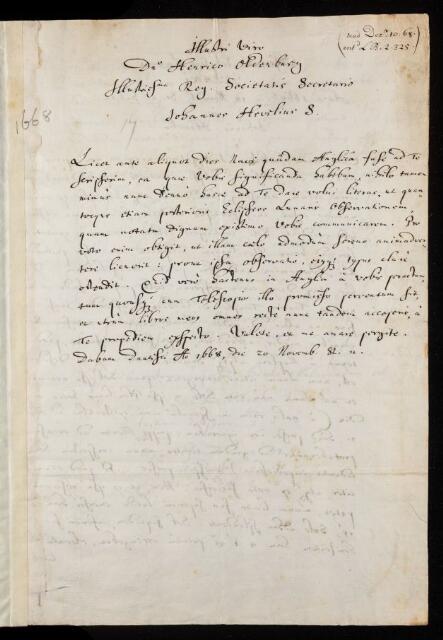 read Decr. 10. 68.
ent. L. B. 2. 325.
Illustri Viro
Dno Henrico Oldenburg
Illustrissimae Reg. Societatis Secretario
Johannes Hevelius S.
1668
17
Licet ante aliquot dies Navi quadam Anglica fuse ad Te
scripserim, ea quae Vobis significanda habebam, nihilo tamen
minus nunc denuo hasce ad Te dare volui literas, ut quan
tocyus etiam Eclipseos Lunaris Observationem
quam notatu dignam Vobis communicarem. Pro
voto enim obtigit, ut illam caelo admodum sereno animadver
tere licuerit; prout ipsa observatio, eiusq typus clare
ostendit. Quid vero hactenus in Anglia a vobis peractum,
cum Telescopio illo promisso perventum sit,
et utrum libros meos omnes recte nunc tandem acceperis, a
Te propediem expecto. Valete, et me amare pergite.
Dabam Dantisci Ao 1668, die 20 Novemb. st. n.